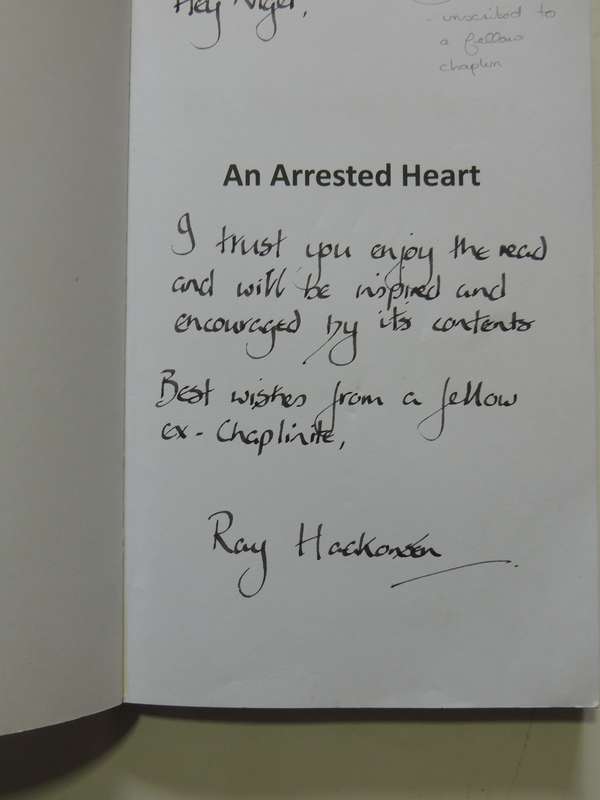 Hey Nigel,
- inscribed to
a fellow
chaplin
An Arrested Heart
I trust you enjoy the read
and will be inspired and
encouraged by its contents
Best wishes from a fellow
ex-Chaplinite,
Ray Haakonsen